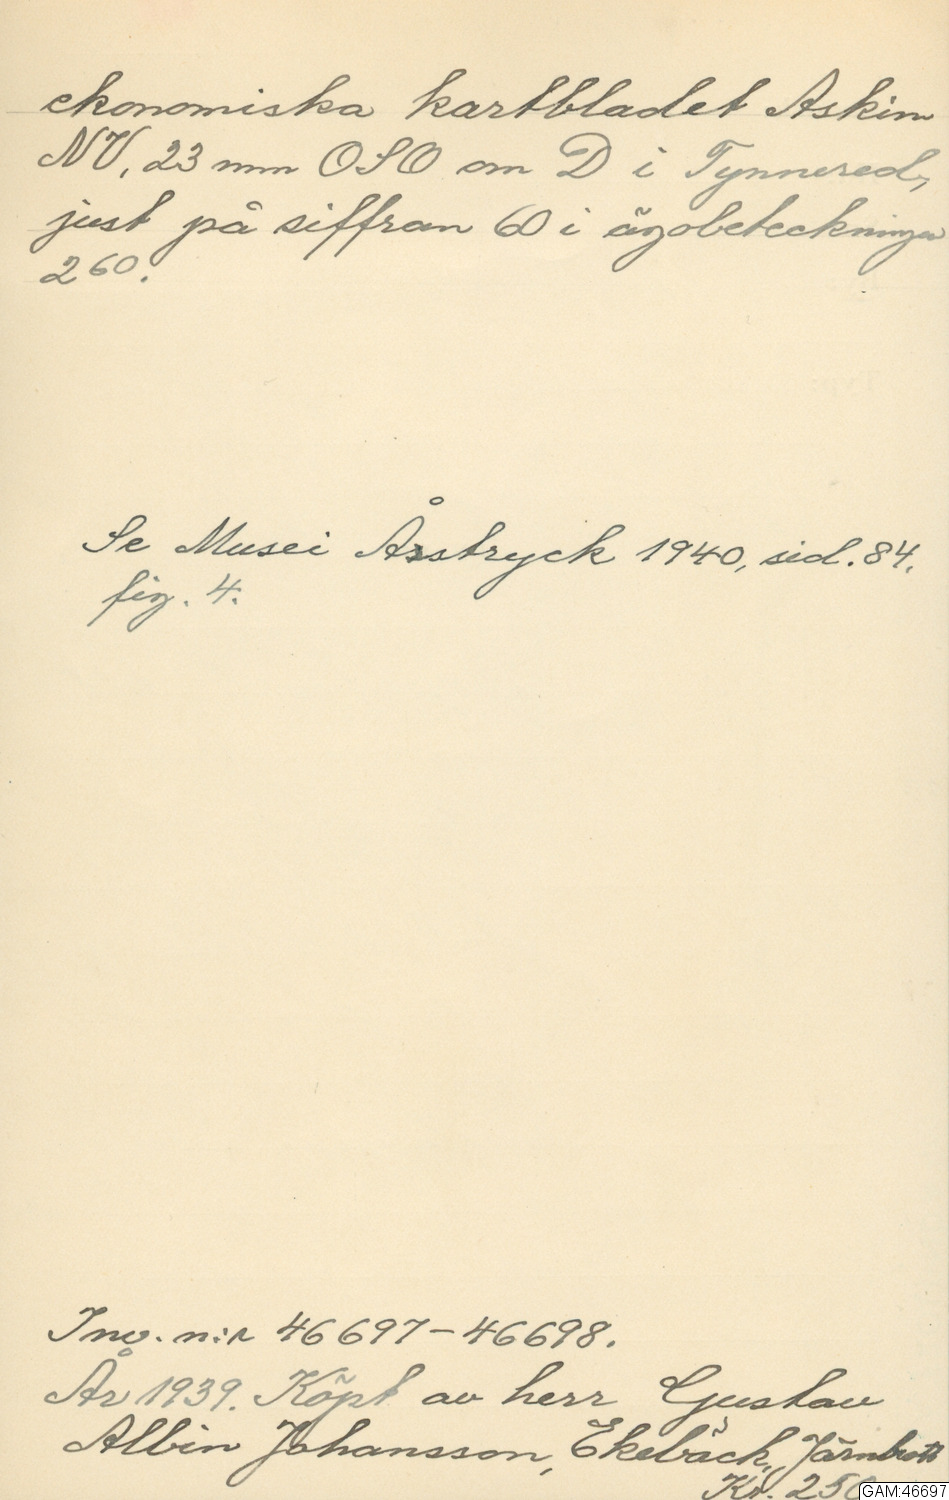 ekonomiska kartbladet Askim
NV, 23 mm OSO om D i Tynnered,
just på siffran 60 i ägobeteckningen
260.
Se Musei Årstryck 1940, sid. 84,
fig. 4.
Inv. n:r 46697-46698.
År 1939. Köpt av herr Gustav
Albin Johansson, Ekebäck, Järnbrott
Kr. 250
GAM:46697